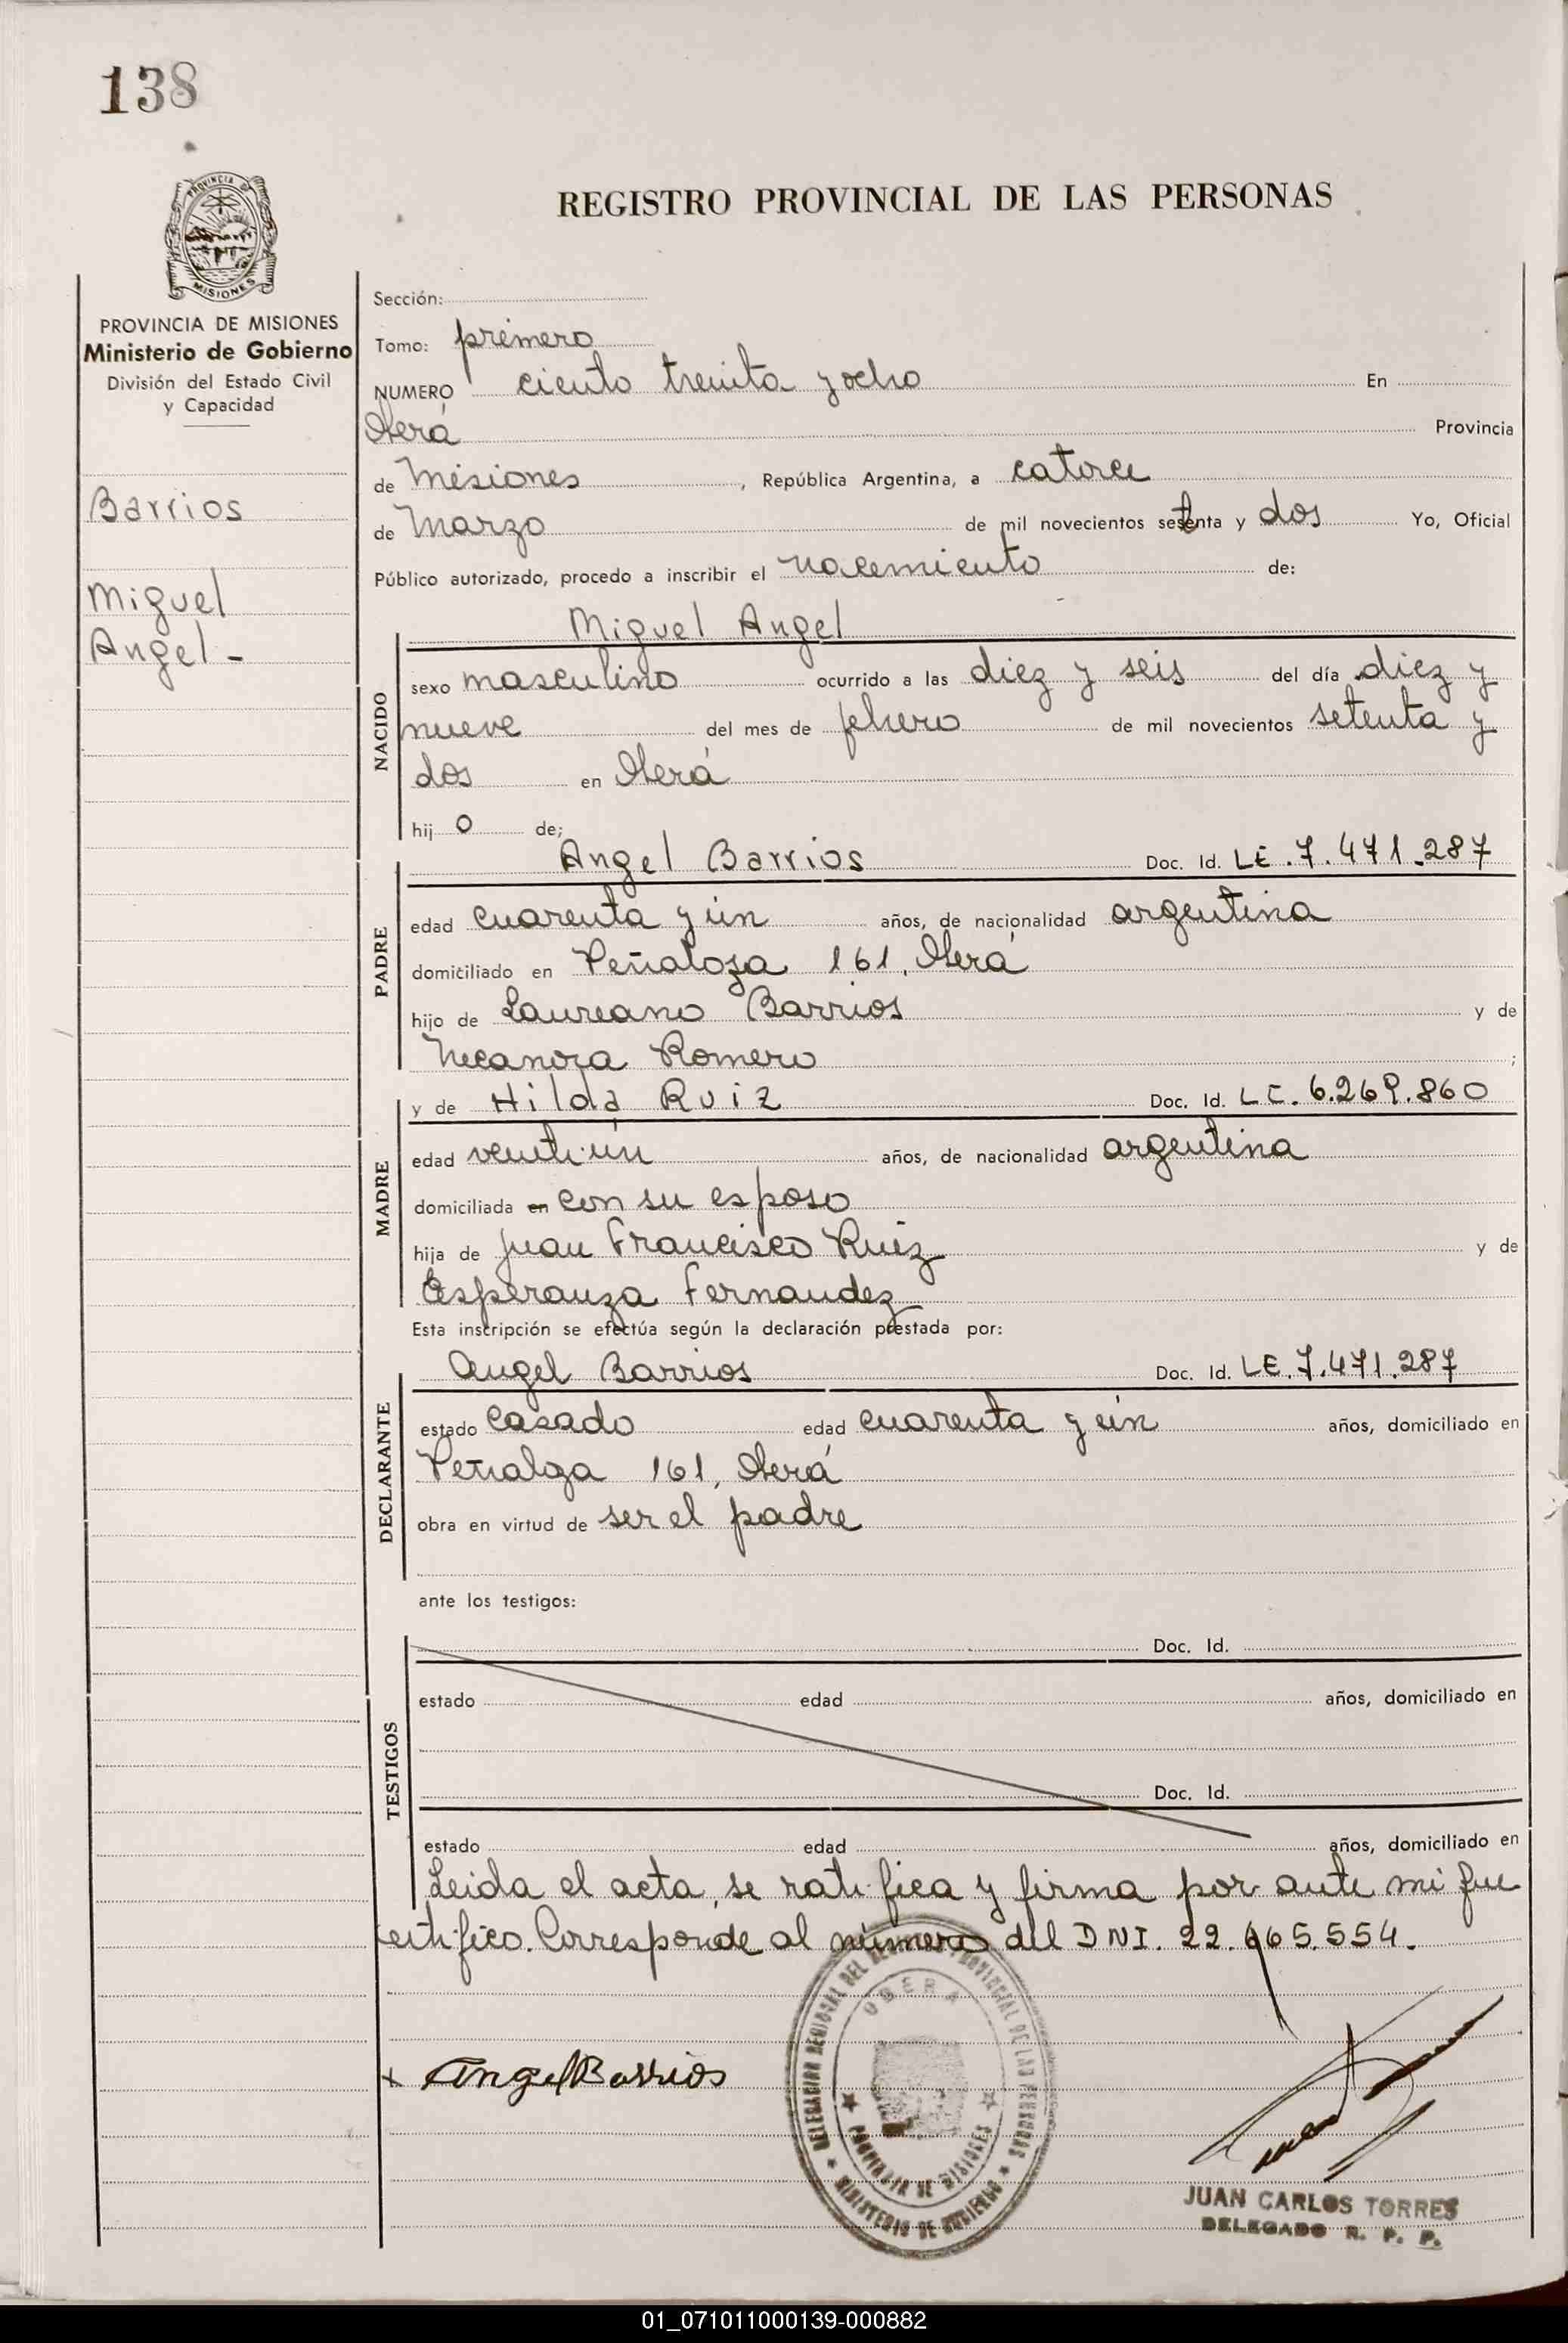 138
PROVINCIA DE
MISIONES
REGISTRO PROVINCIAL DE LAS PERSONAS
PROVINCIA DE MISIONES
Ministerio de Gobierno
División del Estado Civil
y Capacidad
Barrios
Miguel
Angel -
Sección:
Tomo: primero
NUMERO ciento treinta y ocho En
Oberá Provincia
de Misiones, República Argentina, a catorce
de Marzo de mil novecientos setenta y dos Yo, Oficial
Público autorizado, procedo a inscribir el nacimiento de:
Miguel Angel
NACIDO
sexo masculino ocurrido a las diez y seis del día diez y
nueve del mes de febrero de mil novecientos setenta y
dos en Oberá
hij o de;
PADRE
Angel Barrios Doc. Id. LE. 7.471.287
edad cuarenta y ún años, de nacionalidad argentina
domiciliado en Peñaloza 161, Oberá
hijo de Laureano Barrios y de
Necanora Romero ;
MADRE
y de Hilda Ruiz Doc. Id. LC. 6.269.860
edad ventiún años, de nacionalidad argentina
domiciliada en con su esposo
hija de Juan Francisco Ruiz y de
Esperanza Fernandez
Esta inscripción se efectúa según la declaración prestada por:
DECLARANTE
Angel Barrios Doc. Id. LE. 7.471.287
estado casado edad cuarenta y ún años, domiciliado en
Peñaloza 161, Oberá
obra en virtud de ser el padre
ante los testigos:
TESTIGOS
Doc. Id.
estado edad años, domiciliado en
Doc. Id.
estado edad años, domiciliado en
Leida el acta, se ratifica y firma por ante mi que
certifico. Corresponde al número del DNI. 22.665.554.
x Angel Barrios
DELEGACION REGIONAL DEL REGISTRO PROVINCIAL DE LAS PERSONAS
OBERA
PROVINCIA DE MISIONES
MINISTERIO DE GOBIERNO
JUAN CARLOS TORRES
DELEGADO R. P. P.
01_071011000139-000882